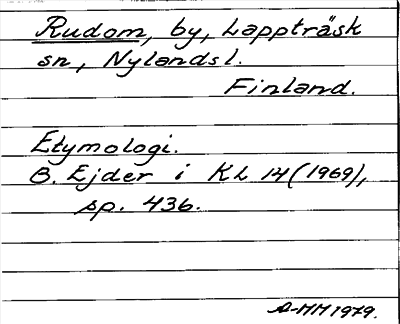 Rudom, by, Lappträsk
sn, Nylandsl.
Finland.
Etymologi.
B. Ejder i KL 14 (1969),
sp. 436.
A-MM 1979.